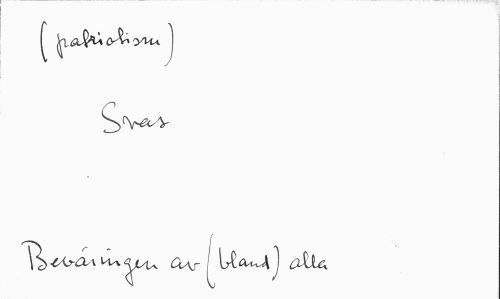 (patriotism)
Svas
Beväringen av (bland) alla